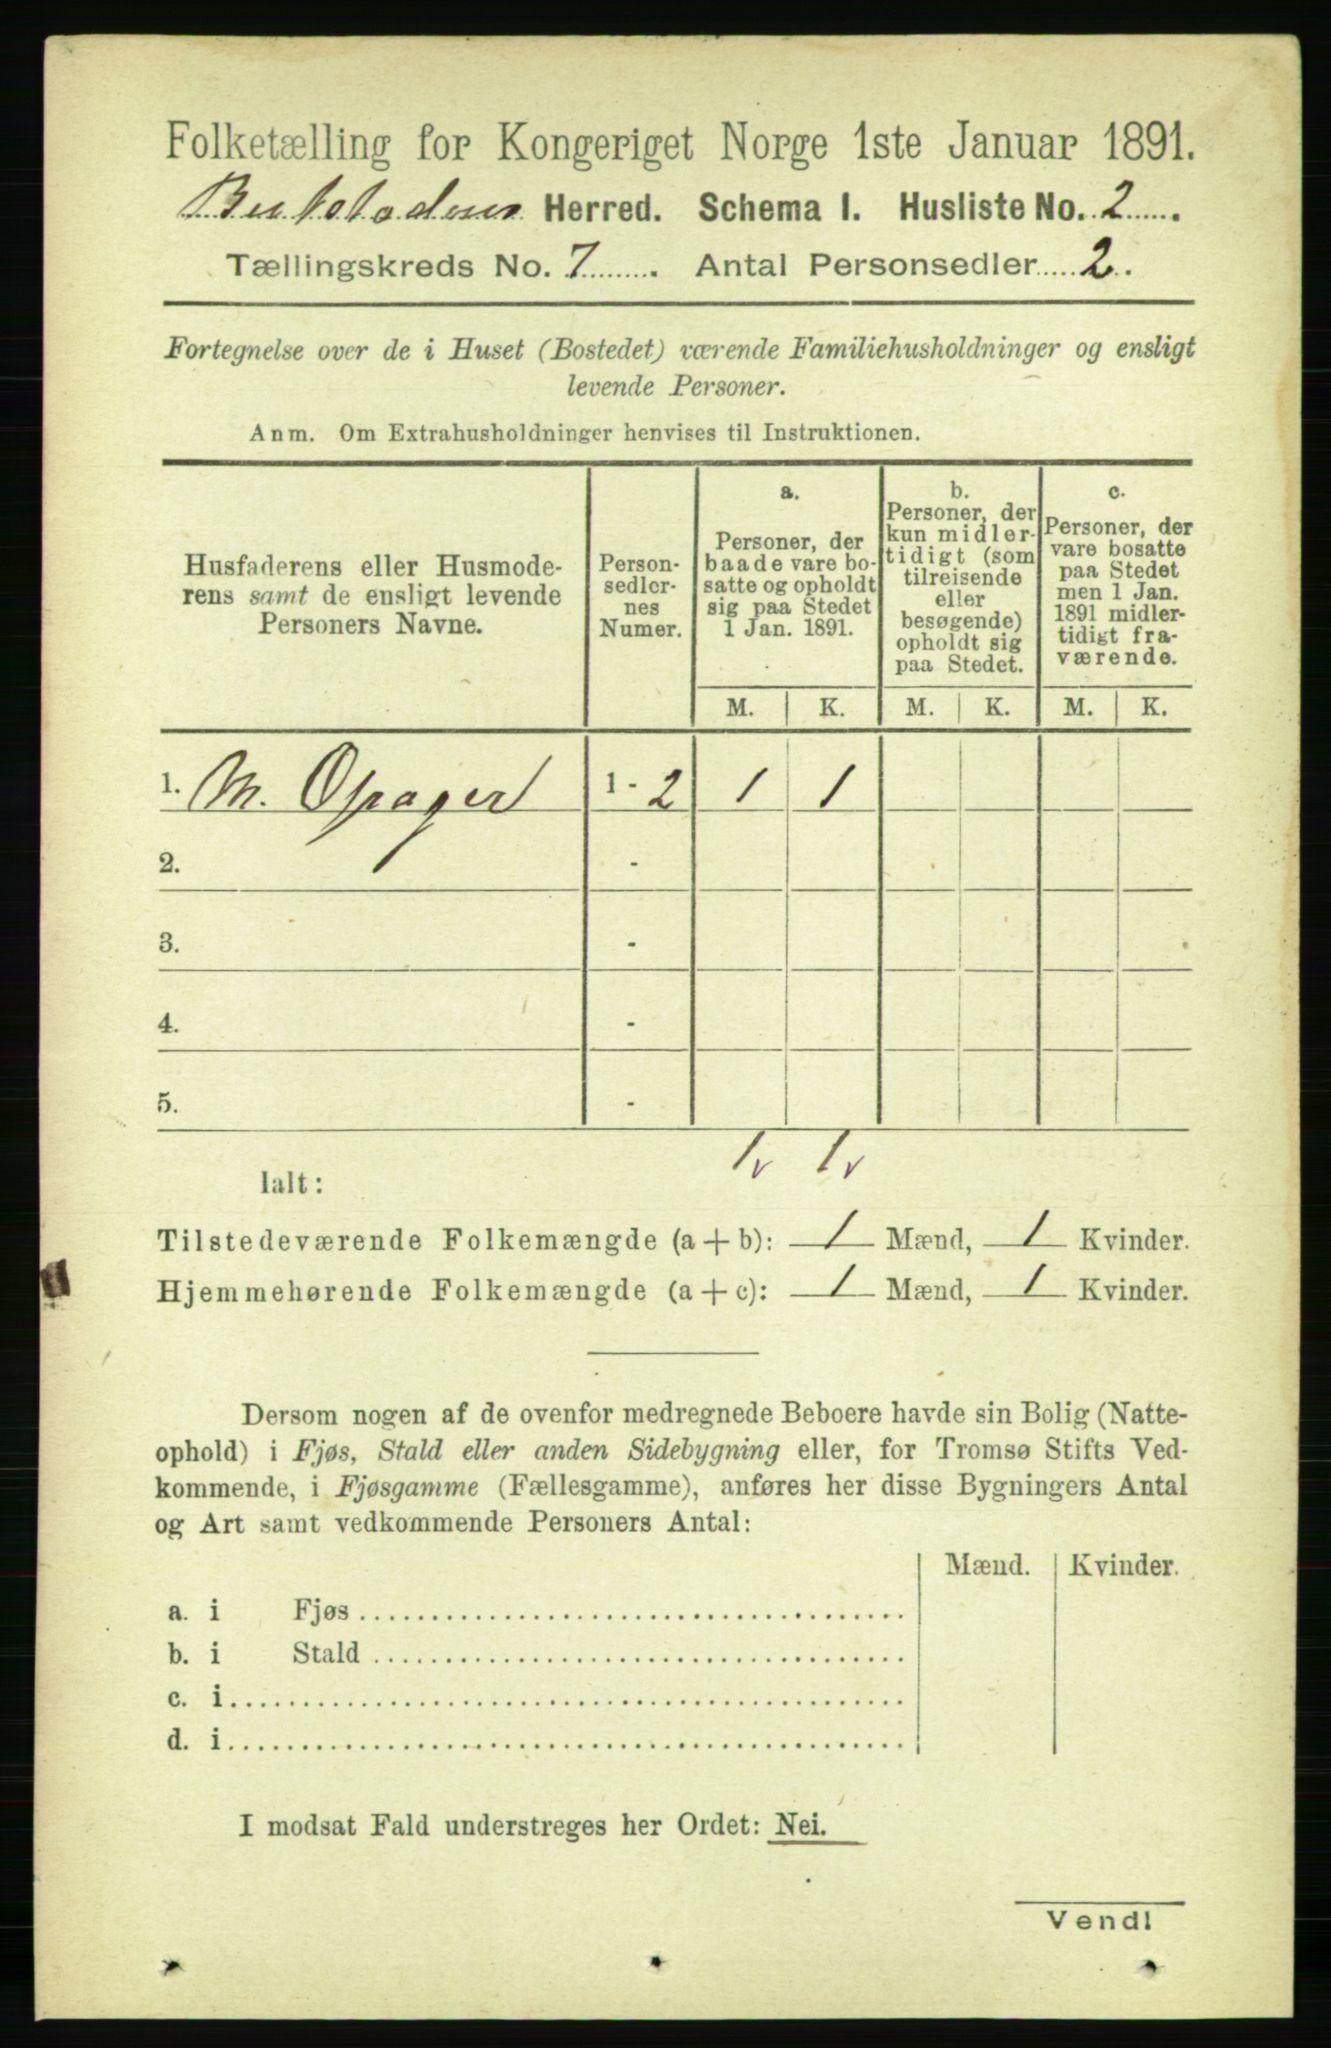 Folketælling for Kongeriget Norge 1ste Januar 1891.
Herred. Schema I. Husliste No. 2
Tællingskreds No. 7. Antal Personsedler 2.
Fortegnelse over de i Huset (Bostedet) værende Familiehusholdninger og ensligt
levende Personer.
Anm. Om Extrahusholdninger henvises til Instruktionen.
Husfaderens eller Husmode-
rens samt de ensligt levende
Personers Navne.
Person-
sedler-
nes
Numer.
a.
Personer, der
baade vare bo-
satte og opholdt
sig paa Stedet
1 Jan. 1891.
b.
Personer, der
kun midler-
tidigt (som
tilreisende
eller
besøgende)
opholdt sig
paa Stedet.
c.
Personer, der
vare bosatte
paa Stedet
men 1 Jan.
1891 midler-
tidigt fra-
værende.
M. K. M. K. M. K.
1. M. Opager 1 - 2 1 1
2. -
3. -
4. -
5. -
1 1
Ialt:
Tilstedeværende Folkemængde (a + b): 1 Mænd, 1 Kvinder.
Hjemmehørende Folkemængde (a + c): 1 Mænd, 1 Kvinder.
Dersom nogen af de ovenfor medregnede Beboere havde sin Bolig (Natte-
ophold) i Fjøs, Stald eller anden Sidebygning eller, for Tromsø Stifts Ved-
kommende, i Fjøsgamme (Fællesgamme), anføres her disse Bygningers Antal
og Art samt vedkommende Personers Antal:
Mænd. Kvinder.
a. i Fjøs
b. i Stald
c. i
d. i
I modsat Fald understreges her Ordet: Nei.
Vend!